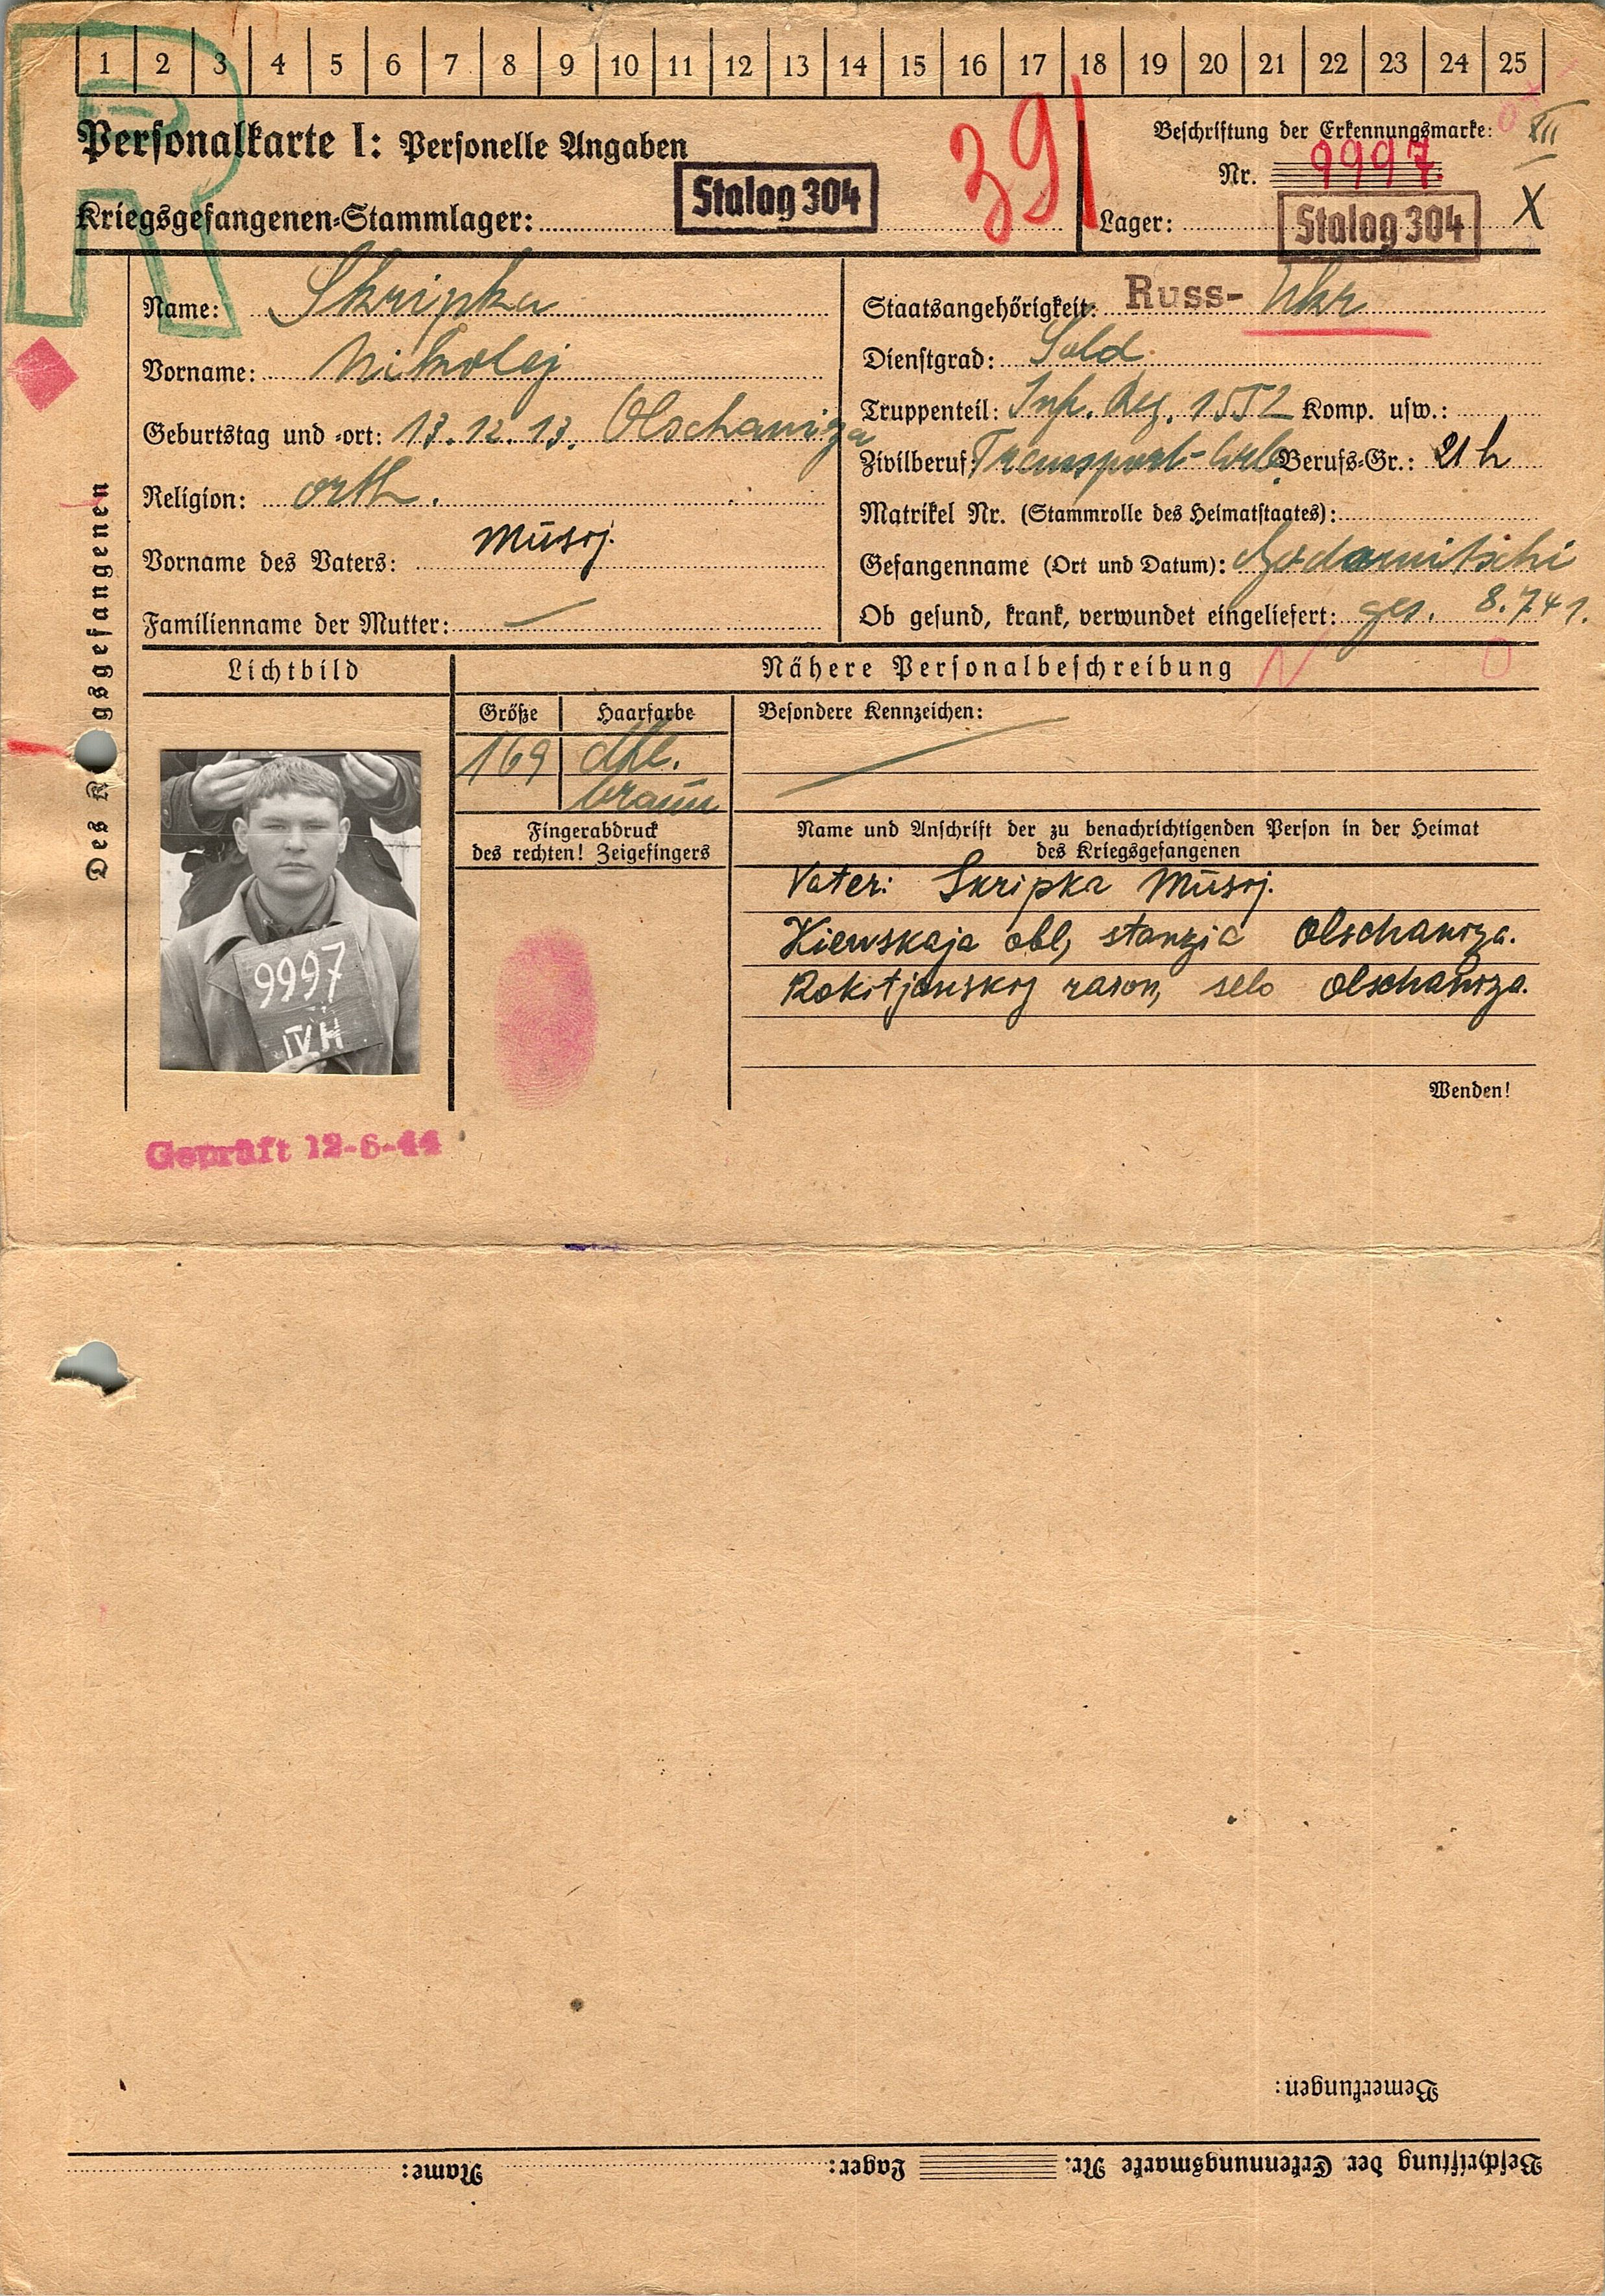 1 2 3 4 5 6 7 8 9 10 11 12 13 14 15 16 17 18 19 20 21 22 23 24 25
R
Personalkarte I: Personelle Angaben
391
Beschriftung der Erkennungsmarke: XII
Nr. 9997.
Kriegsgefangenen-Stammlager: Stalag 304
Lager: Stalag 304 X
Des K gsgefangenen
Name: Skripka
Vorname: Nikolej
Geburtstag und -ort: 13.12.13. Olschaniza
Religion: orth.
Vorname des Vaters: Musij.
Familienname der Mutter: —
Staatsangehörigkeit: Russ- Ukr
Dienstgrad: Sold.
Truppenteil: Inf. Reg. 1552 Komp. usw.:
Zivilberuf: Transport-Arb. Berufs-Gr.: 21 h
Matrikel Nr. (Stammrolle des Heimatstaates):
Gefangenname (Ort und Datum):
Ob gesund, krank, verwundet eingeliefert: ges. 8.7.41.
Lichtbild
Nähere Personalbeschreibung
N O
Größe
Haarfarbe
169
dkl.
braun
Besondere Kennzeichen:
Fingerabdruck
des rechten! Zeigefingers
Name und Anschrift der zu benachrichtigenden Person in der Heimat
des Kriegsgefangenen
Vater: Skripka Musij.
Kiewskaja obl, stanzia Olschaniza.
Rokitjanskij raion, selo Olschaniza.
9997
IV H
Wenden!
Geprüft 12-6-44
Bemerkungen:
Beschriftung der Erkennungsmarke Nr. Lager: Name: